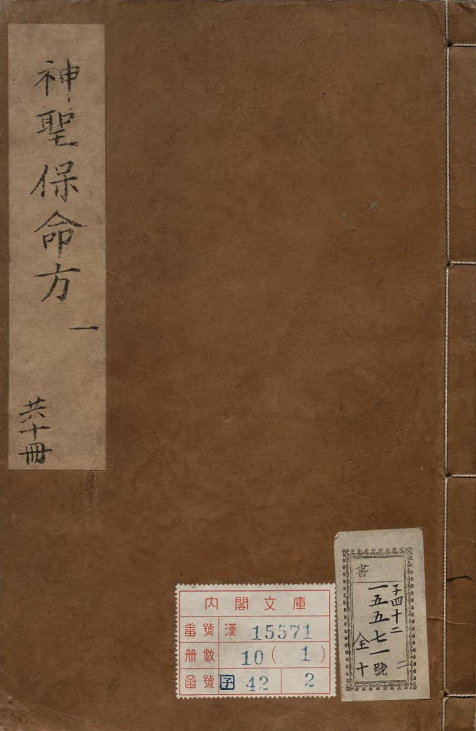 神聖保命方
一
共十冊
內閣文庫
番號 漢 15571
冊數 10(1)
函號 子 42 2
書
子四十二
一五五七一號
全十
二
一